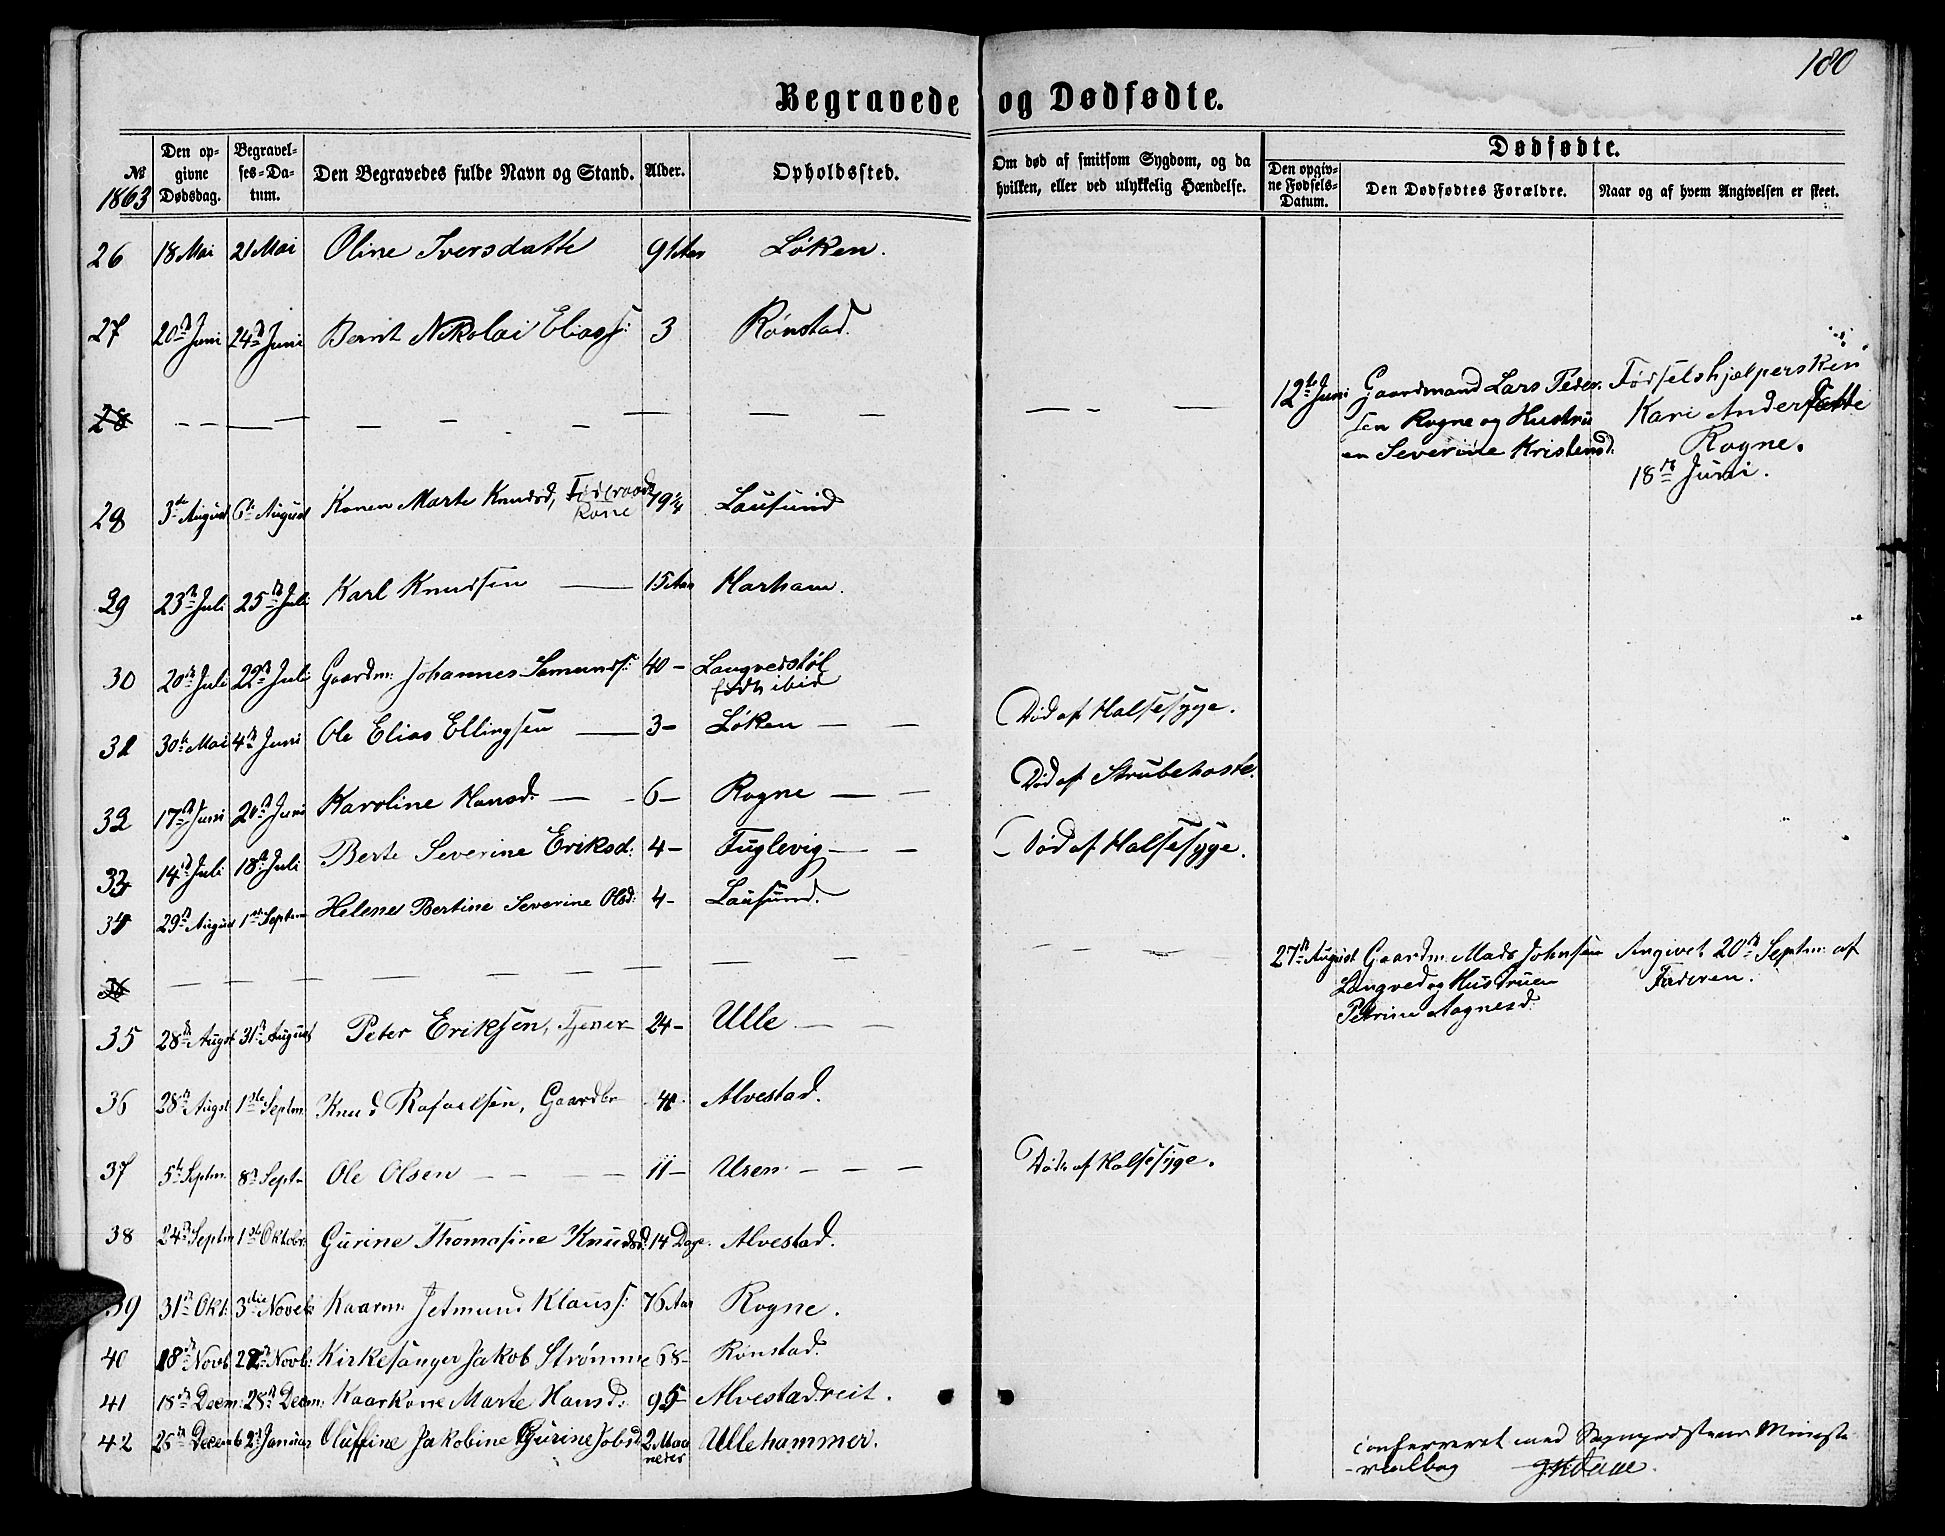 180
Begravede og Dødfødte.
№ 1863
Den opgivne Dødsdag.
Begravelses-Datum.
Den Begravedes fulde Navn og Stand.
Alder.
Opholdssted.
Om død af smitsom Sygdom, og da hvilken, eller ved ulykkelig Hændelse.
Dødfødte.
Den opgivne Fødsels-Datum.
Den Dødfødtes Forældre.
Naar og af hvem Angivelsen er skeet.
26 18 Mai 21 Mai Oline Iversdatte 91 Aar Løken.
27 20de Juni 24de Juni Bernt Nikolai Eliass: 3 Rønstad.
28 — — — — — — 12te Juni Gaardmand Lars Peder- Fødselshjælpersken
sen Rogne og Hustru Kari Andersdatte
en Severine Kristensd: Rogne.
18de Juni.
28 3de August 6te August Konen Marte Knudsd, Føderaads 79 ¼ Lausund
Kone
29 23de Juli 25de Juli Karl Knudsen — 15 Aar Harham.
30 20de Juli 22de Juli Gaardm: Johannes Samunds: 40 – Langvedstøl
født ibid
31 30te Mai 4de Juni Ole Elias Ellingsen — 3 – Løken — — Død af Halsesyge.
32 17de Juni 20de Juni Karoline Hansd. — - 6 – Rogne — — Død af Strubehoste.
33 14de Juli 18de Juli Berte Severine Eriksd: 4 – Fuglevig — — Død af Halsesyge.
34 29de August 1ste Septem Helene Bertine Severine Olsd: 4 - Lausund.
— — — — — — 27de August Gaardm: Mads Johnsen Angivet 20de Septm: af
Langved og Hustruen Faderen.
Petrine Aagnesd.
35 28de Augst 31te August Peter Eriksen, Tjener – 24 – Ulle — —
36 28de Augst 1ste Septm. Knud Rafaelsen, Gaardbr Alvestad.
37 5te Septm. 8de Septr Ole Olsen — — — 11 – Uren. — — — Død af Halsesyge.
38 24de Septm 1ste Oktober Gurine Thomasine Knudsd: 14 Dage. Alvestad.
39 31te Okt: 3die Novek Kaarm: Jetmund Klauss: 76 Aar Rogne.
40 18de Novb. Novb: Kirkesanger Jakob Strømme 68 – Rønstad.
41 18de Decm: 28de Decm: Kaarkone Marte Hansd: 95 – Alvestadreit.
42 Decem Januar Oluffine Jakobine Gurine Jobsd 2 Maa Ullehammer.
neder
Confereret med Sognepræstens Ministe-
-rialbog